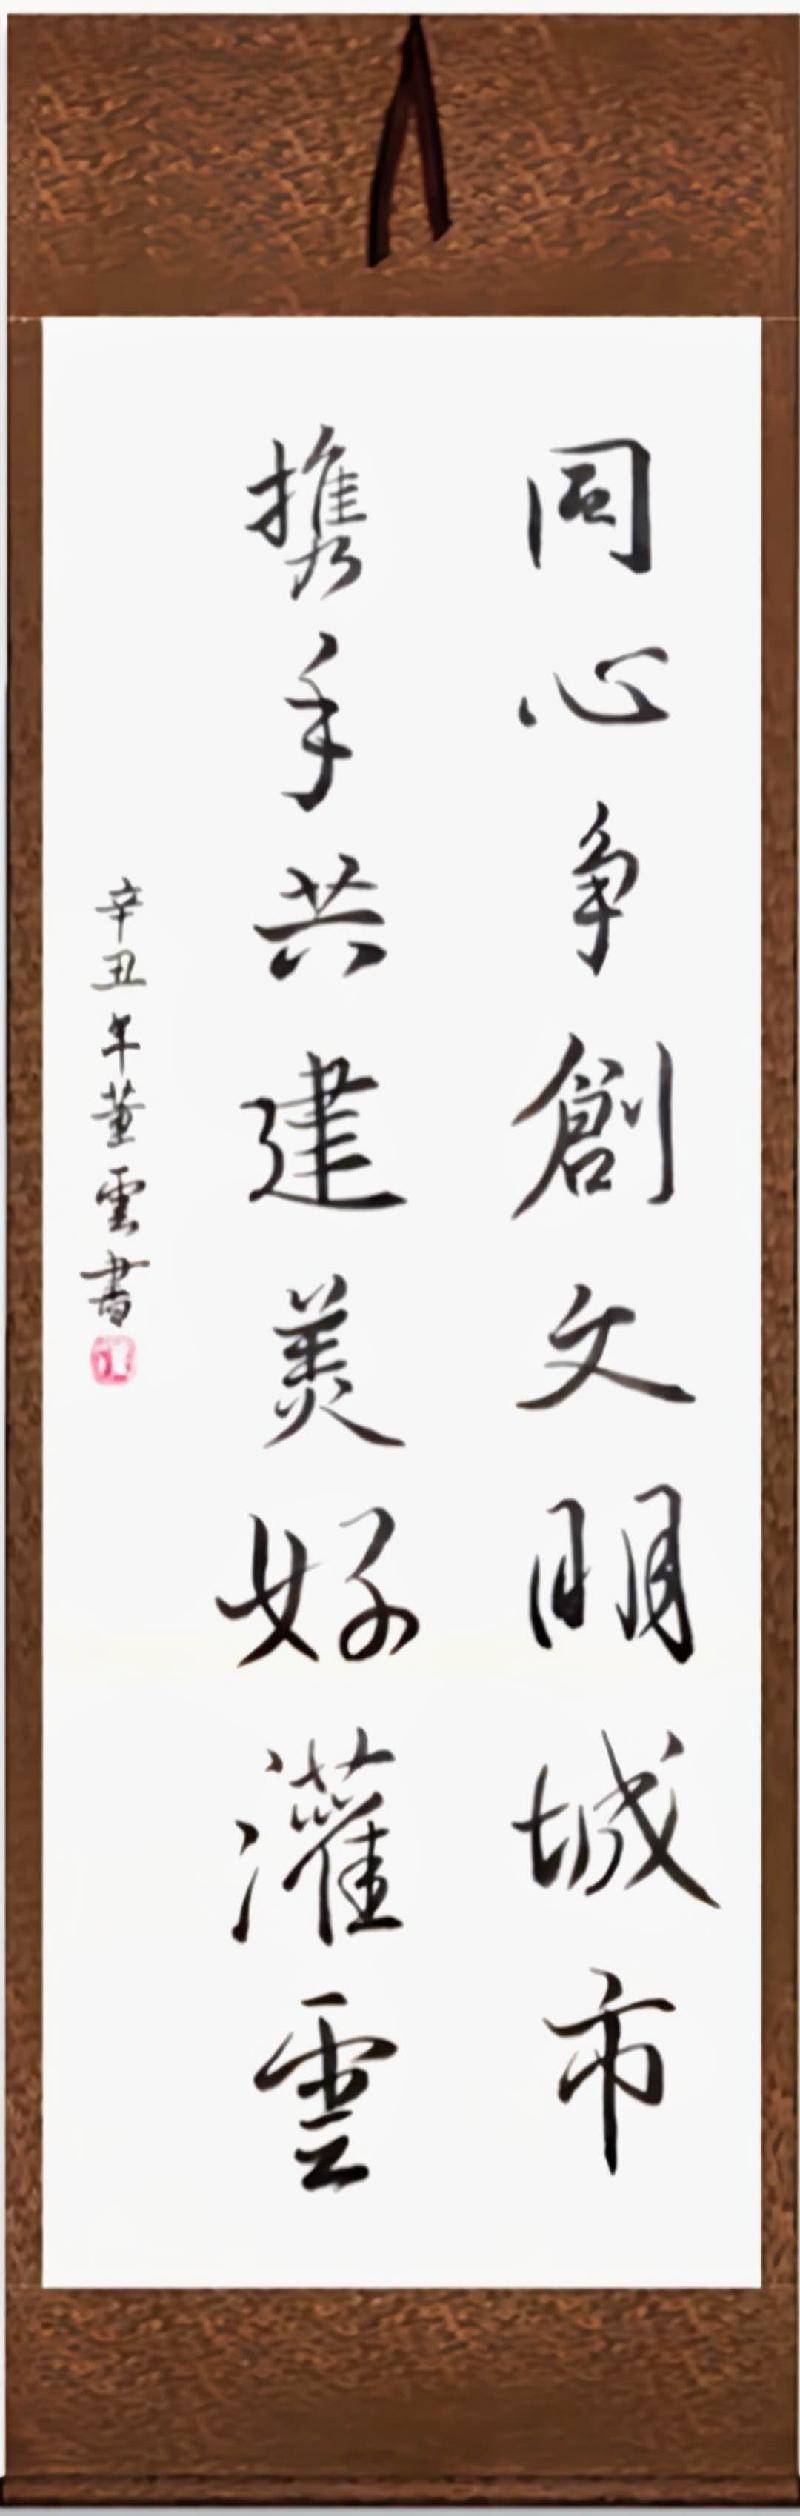 同心争創文明城市
携手共建美好灌雲
辛丑年董雲書